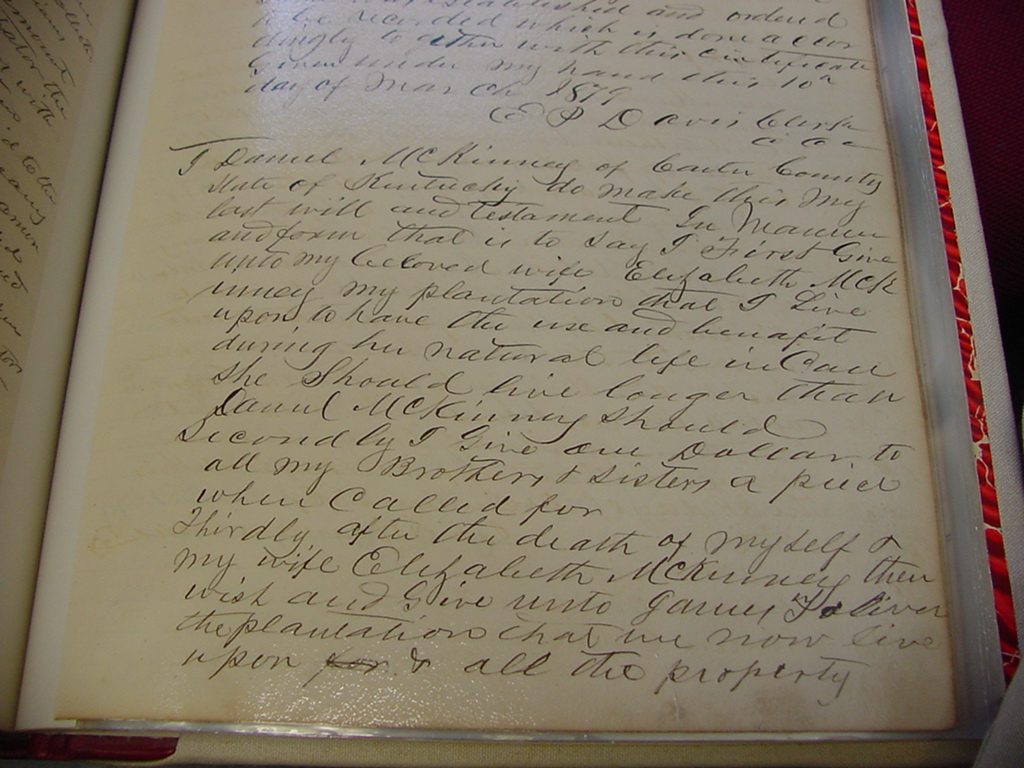 established and ordered
to be recorded which is done accor
dingly to gether with this Certificate
Given under my hand this 10th
day of March 1879
E P Davis Clerk
I Daniel McKinney of Carter County
State of Kentucky do make this My
last will and testament In Manner
and form that is to Say I First Give
unto my beloved wife Elizabeth McK
inney my plantation that I Live
upon to have the use and benafit
during her natural life in Case
She Should live longer than
Daniel McKinney Should
Secondly I Give one Dollar to
all my Brothers & Sisters a piece
when Called for
Thirdly after the death of myself &
my wife Elizabeth McKinney then
wish and Give unto James
the plantation that we now live
upon for & all the property